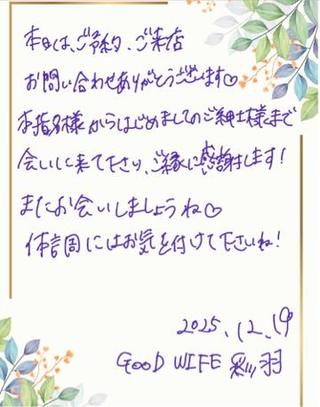 本日は、ご予約、ご来店
お問い合わせありがとうございます♡
本指名様からはじめましてのご紳士様まで
会いに来て下さり、ご縁に感謝します！
またお会いしましょうね♡
体調にはお気を付けて下さいね！
2025.12.19
GOOD WIFE 彩羽